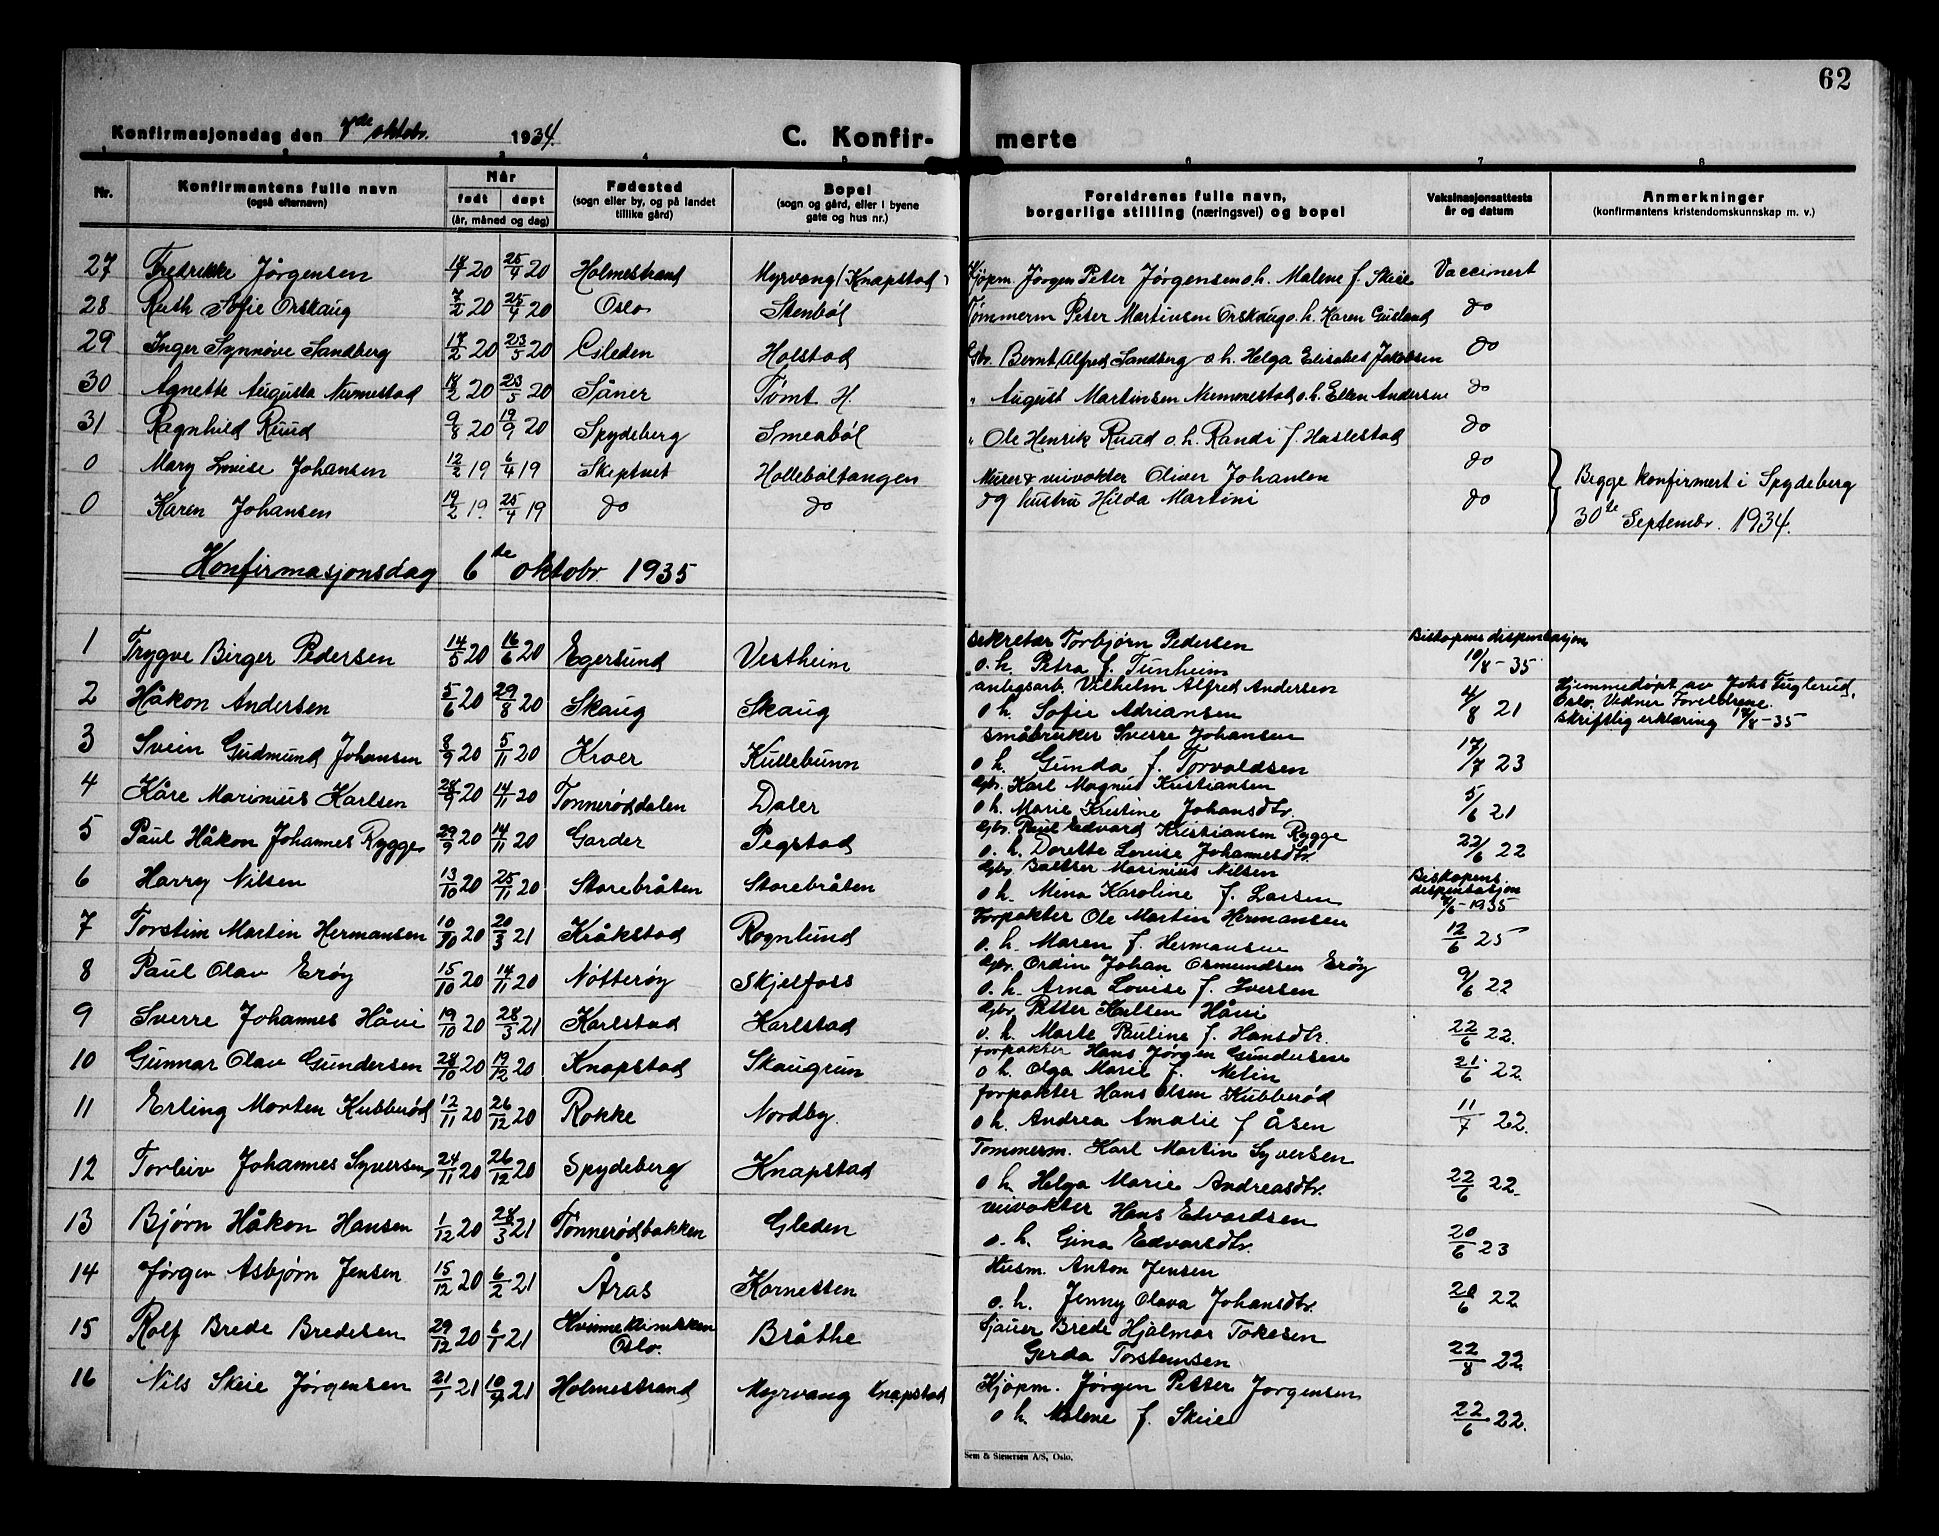 62
Konfirmasjonsdag den 7de oktobr. 1934. C. Konfir- merte
1 2 3 4 5 6 7 8
Nr. Konfirmantens fulle navn (også efternavn) Når født døpt (år, måned og dag) Fødested (sogn eller by, og på landet tillike gård) Bopel (sogn og gård, eller i byene gate og hus nr.) Foreldrenes fulle navn, borgerlige stilling (næringsvei) og bopel Vaksinasjonsattests år og datum Anmerkninger (konfirmantens kristendomskunnskap m. v.)
27 Fredrikke Jørgensen 20 25/4 20 Holmestrand Myrvang (Knapstad) Kjøpm. Jørgen Peter Jørgensen o. h. Malene f. Skeie Vaccinert
28 Ruth Sofie Orskaug 7/2 20 25/4 20 Oslo Stenbøl Tømmerm Peter Martinsen Orskaug o. h. Karen Gusland do
29 Inger Synnøve Sandberg 17/2 20 23/5 20 Gleden Holstad Gbr. Bernt Alfred Sandberg o. h. Helga Elisabet Jakobsen do
30 Agnette Augusta Nummestad 18/2 20 23/5 20 Såner Tømt H. " August Martinsen Nummestad o. h. Ellen Andersen do
31 Ragnhild Ruud 9/8 20 19/9 20 Spydeberg Smeabøl " Ole Henrik Ruud o. h. Randi f. Haslestad do
0 Mary Louise Johansen 12/2 19 6/4 19 Skeptvet Holleboltangen Murer & veivokter Oliver Johansen do Begge konfirmert i Spydeberg
0 Karen Johansen 19/2 19. 25/4 19 do do og hustru Hilda Martini do 30te Septembr. 1934.
Konfirmasjonsdag 6te oktobr 1935
1 Trygve Birger Pedersen 14/5 20 16/6 20 Egersund Vestheim sekretær Torbjørn Pedersen Biskopens dispensasjon
o. h. Petra f. Tunheim 10/8-35
2 Håkon Andersen 5/6 20 29/8 20 Skaug Skaug anlegsarb. Vilhelm Alfred Andersen 4/8 21 Hjemmedøpt av Johs Fuglerud,
o h. Sofie Adriansen Oslo. Vidner Foreldrene.
skriftlig erklæring /8-35
3 Svein Gudmund Johansen 8/9 20 5/11 20 Kroer Kullebunn småbruker Sverre Johansen 17/7 23
o h. Gunda f. Torvaldsen
4 Kåre Marinius Karlsen 28/9 20 14/11 20 Tonnerøddalen Daler Gbr. Karl Magnus Kristiansen 5/6 21
o h. Marie Kristine Johansdtr.
5 Paul Håkon Johannes Rygge 29/9 20 14/11 20 Garder Pegstad Gbr. Paul Edvard Kristiansen Rygge 22/6 22
o. h. Dorette Lovise Johannesdtr.
6 Harry Nilsen 13/10 20 25/11 20 Storebråten Storebråten Gbr. Baltser Marinius Nilsen Biskopens.
o h. Mina Karoline f. Larsen dispensasjon
/6-1935
7 Torstein Martin Hermansen 10/10 20 20/3 21 Kråkstad Rognlund Forpakter Ole Martin Hermansen 12/6 25
o. h. Maren f. Hermansen
8 Paul Olav Erøy 15/10 20 14/11 20 Nøtterøy Skjelfoss Gbr. Ordin Johan Osmundsen Erøy 9/6 22
o. h. Arna Lovise f. Iversen
9 Sverre Johannes Håvi 19/10 20 28/3 21 Karlstad Karlstad Gbr. Petter Karlsen Håvi 22/6 22.
o. h. Marte Pauline f. Hansdtr.
10 Gunnar Olav Gundersen 28/10 20 19/12 20 Knapstad Skaugrun forpakter Hans Jørgen Gundersen 21/6 22.
o h. Olga Marie f. Melin
11 Erling Morten Kubberød 12/11 20 26/12 20 Rokke Nordby. forpakter Hans Olsen Kubberød 11/7 22.
o h. Andrea Amalie f Åsen
12 Torleiv Johannes Syversen 24/11 20 26/12 20 Spydeberg Knapstad Tømmerm. Karl Martin Syversen 22/6 22.
o h. Helga Marie Andreasdtr.
13 Bjørn Håkon Hansen 1/12 20 28/3 21 Tonnerødbakken Gleden veivokter Hans Edvardsen 20/6 23
o. h. Gina Edvarsdtr.
14 Jørgen Asbjørn Jensen 15/12 20 6/2 21 Åras Kornetten Husm. Anton Jensen 20/6 22
o. h. Jenny Olava Johansdtr.
15 Rolf Brede Bredesen 29/12 20 6/1 21 Kvinneklinikken Oslo. Bråthe Sjauer Brede Hjalmar Tokesen 22/8 22
Gerda Torstensen
16 Nils Skeie Jørgensen 21/1 21 10/7 21 Holmestrand Myrvang Knapstad Kjøpm. Jørgen Petter Jørgensen 22/6 22.
o h. Malene f. Skeie
Sem & Stenersen A/S, Oslo.